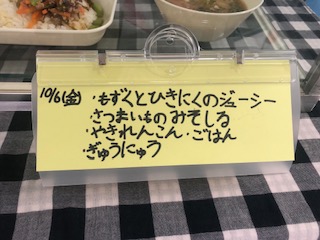 10/6(金) ・もずくとひきにくのジューシー
・さつまいものみそしる
・やきれんこん ・ごはん
・ぎゅうにゅう